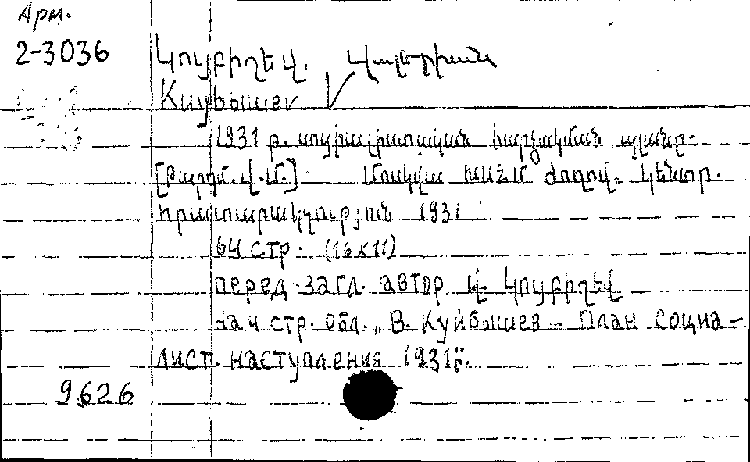 Арм.
2-3036
Կույբիշեվ. Վալերիան
Куйбышев
1931 թ. սոցիալիստական հարձակման պլանը.
[թարգմ. Վ.Մ.] Մոսկվա ԽՍՀՄ ժողով. կենտր.
հրատարակչություն 1931
64 стр. (16x11)
перед загл. автор Վ. Կույբիշեվ
на 4 стр. обл. „В. Куйбышев - План социа-
лист. наступления 1931 г.
9626